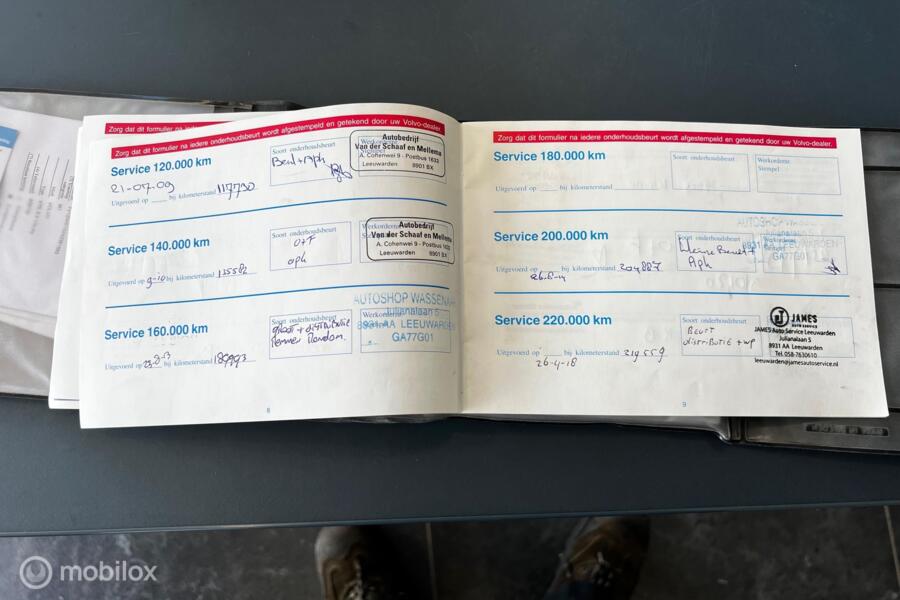 Zorg dat dit formulier na iedere
Zorg dat dit formulier na iedere onderhoudsbeurt wordt afgestempeld en getekend door uw Volvo-dealer.
Service 120.000 km
Soort onderhoudsbeurt
Beurt + aph
Werkorderno
Stempel
Autobedrijf
Van der Schaaf en Mellema
A. Cohenwei 9 - Postbus 1633
Leeuwarden 8901 BX
21-07-09
Uitgevoerd op bij kilometerstand 117790
Service 140.000 km
Soort onderhoudsbeurt
O+F
aph
Werkorderno
Autobedrijf
Van der Schaaf en Mellema
A. Cohenwei 9 - Postbus 1633
Leeuwarden 8901 BX
Uitgevoerd op bij kilometerstand 135582
Service 160.000 km
Soort onderhoudsbeurt
groot + distributie
remmen rondom.
Werkorderno
AUTOSHOP WASSENAAR
Julianalaan 5
8931 AA LEEUWARDEN
GA77G01
Uitgevoerd op bij kilometerstand
8
Zorg dat dit formulier na iedere onderhoudsbeurt wordt afgestempeld en getekend door uw Volvo-dealer.
Service 180.000 km
Soort onderhoudsbeurt
Werkorderno
Stempel
Uitgevoerd op bij kilometerstand
Service 200.000 km
Soort onderhoudsbeurt
kleine Beurt +
Aph
Werkorderno
Julianalaan 5
8931 AA LEEUWARDEN
GA77G01
Uitgevoerd op bij kilometerstand 204887
Service 220.000 km
Soort onderhoudsbeurt
Beurt
distributie + wp
J JAMES
AUTO SERVICE
JAMES Auto Service Leeuwarden
Julianalaan 5
8931 AA Leeuwarden
Tel. 058-7630610
leeuwarden@jamesautoservice.nl
Uitgevoerd op bij kilometerstand 219559
26-4-18
9
mobilox